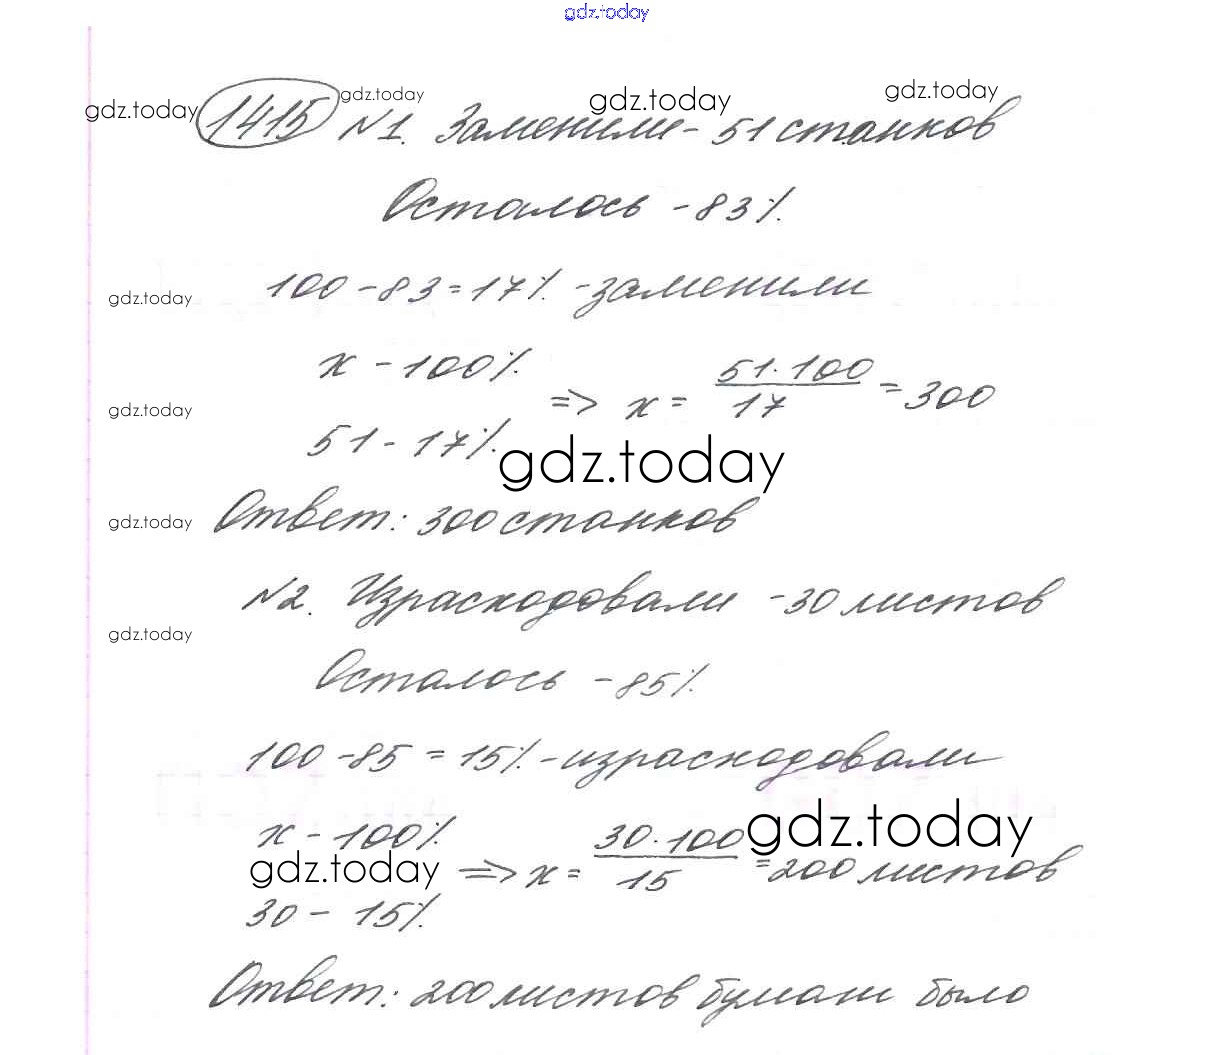 gdz.today
1415 №1. Заменили - 51 станков
gdz.today gdz.today gdz.today gdz.today
Осталось - 83%.
100 - 83 = 17%. - заменили
gdz.today
x - 100%.
=> x = 51·100 / 17 = 300
gdz.today
51 - 17%.
gdz.today
Ответ: 300 станков
gdz.today
№2. Израсходовали - 30 листов
gdz.today
Осталось - 85%.
100 - 85 = 15%. - израсходовали
x - 100%.
=> x = 30·100 / 15 = 200 листов
gdz.today gdz.today
30 - 15%.
Ответ: 200 листов бумаги было